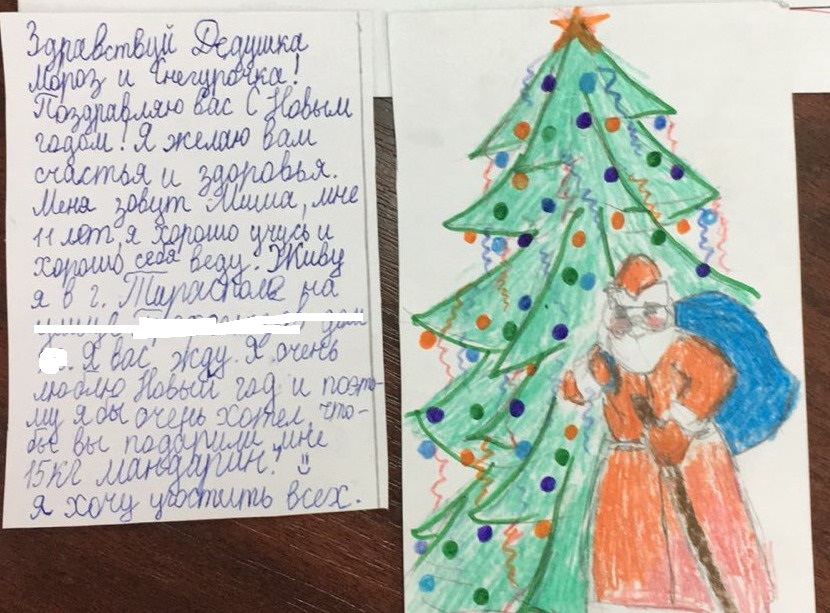 Здравствуй Дедушка
Мороз и Снегурочка!
Поздравляю вас С Новым
годом! Я желаю вам
счастья и здоровья.
Меня зовут Миша, мне
11 лет, я хорошо учусь и
хорошо себя веду. Живу
я в г. Тирасполе на
дом
. Я вас жду. Я очень
люблю Новый год и поэто-
му я бы очень хотел, что-
бы вы подарили мне
15кг мандарин! :)
Я хочу угостить всех.